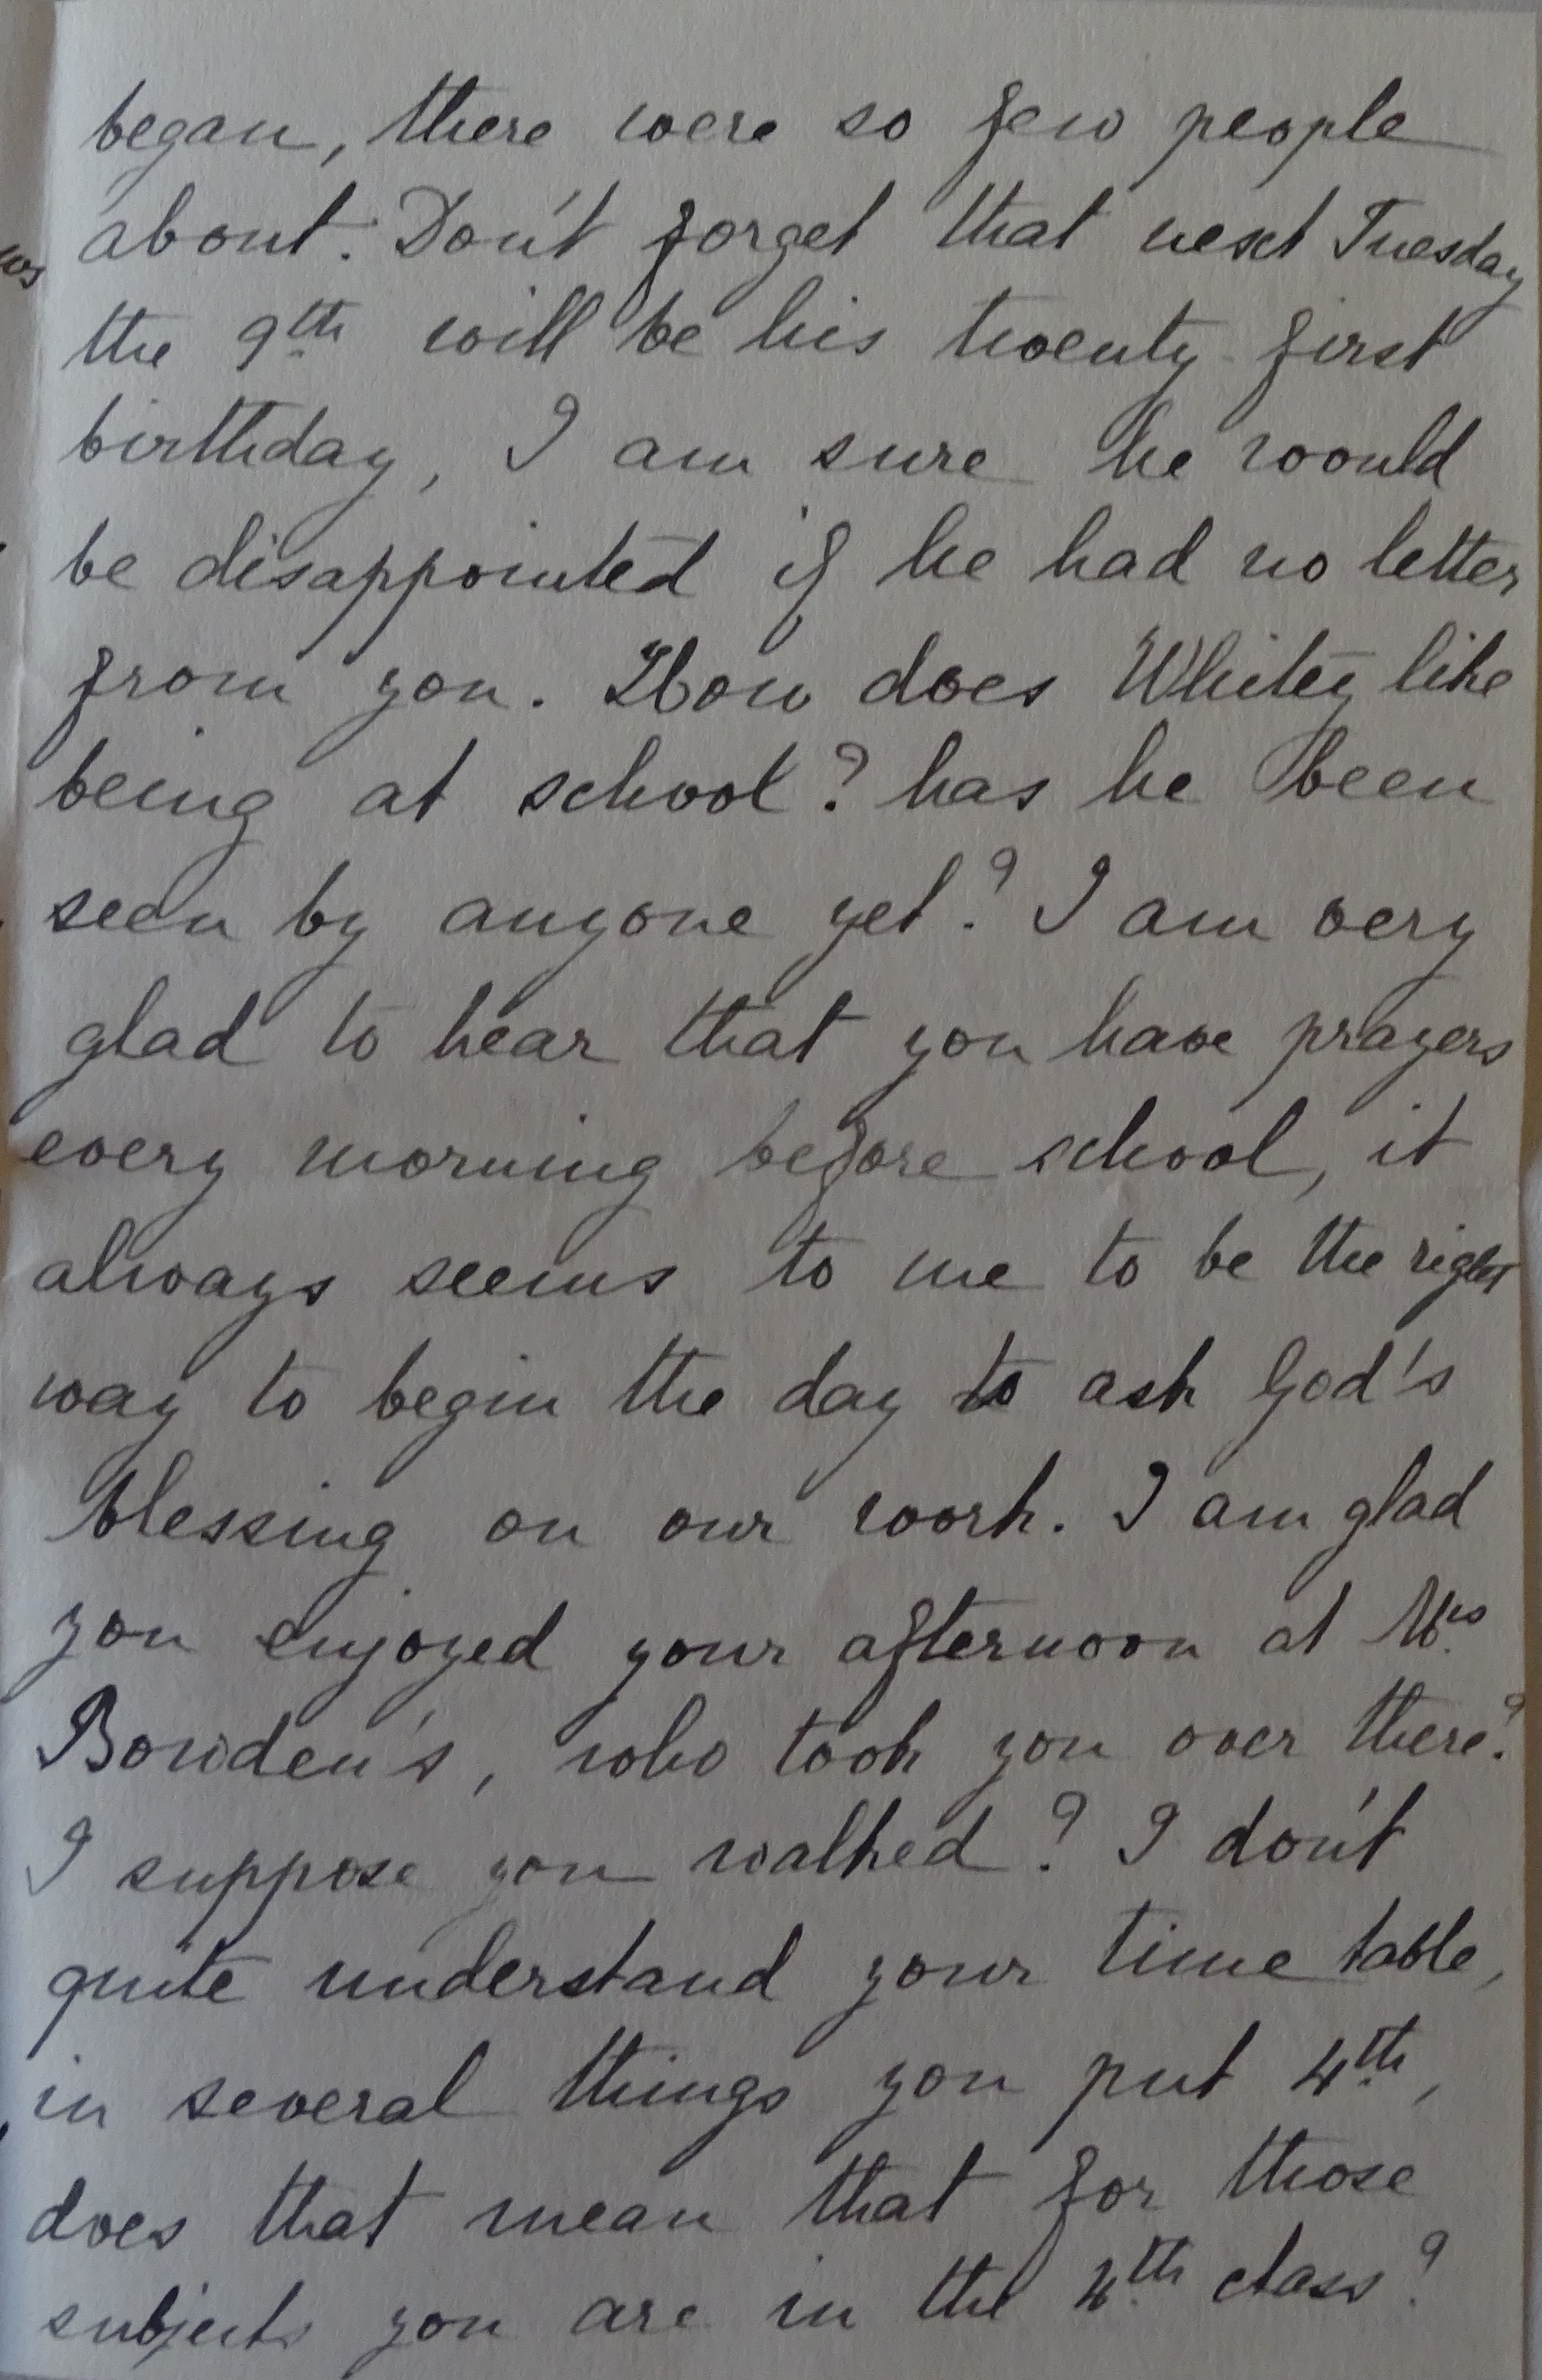 began, there were so few people
about. Don't forget that next Tuesday
the 9th will be his twenty first
birthday, I am sure he would
be disappointed if he had no letter
from you. How does Whitey like
being at school? has he been
seen by anyone yet? I am very
glad to hear that you have prayers
every morning before school, it
always seems to me to be the right
way to begin the day to ask God's
blessing on our work. I am glad
you enjoyed your afternoon at Mrs.
Bowden's, who took you over there?
I suppose you walked? I don't
quite understand your time table,
in several things you put 4th,
does that mean that for those
subjects you are in the 4th class?